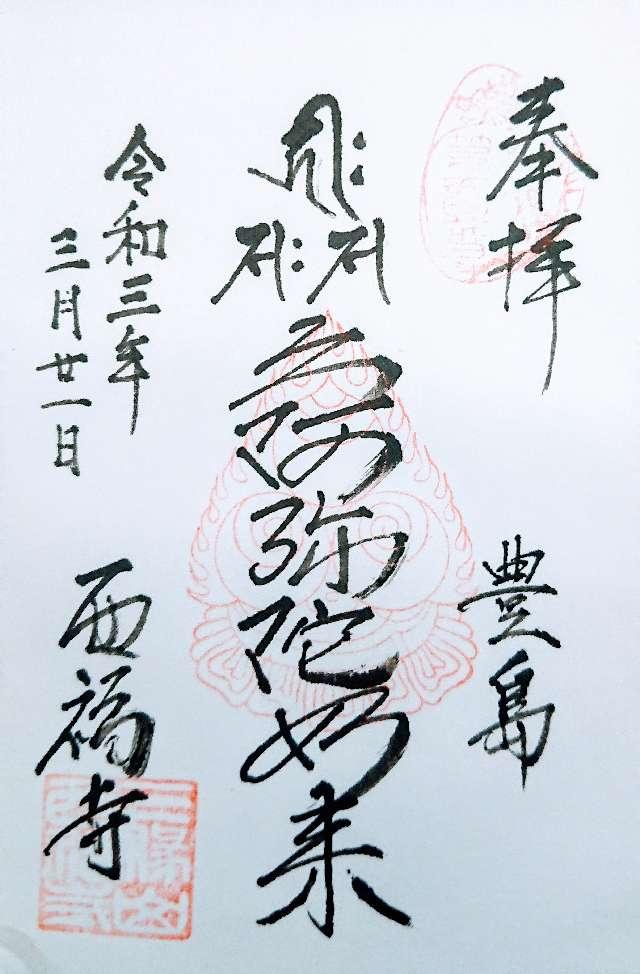 奉拝
豊島
六阿弥陀如来
令和三年
三月廿一日
西福寺